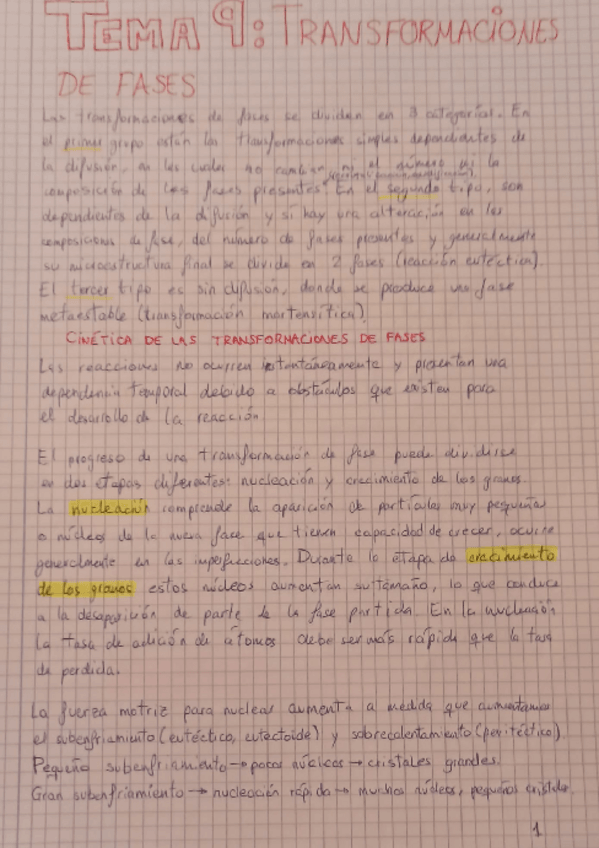 TEMA 9: TRANSFORMACIONES
DE FASES
Las transformaciones de fases se dividen en 3 categorías. En
el primer grupo están las transformaciones simples dependientes de
la difusión, en las cuales no cambian ni el número ni la
composición de las fases presentes. En el segundo tipo, son
dependientes de la difusión y si hay una alteración en las
composiciones de fase, del número de fases presentes y generalmente
su microestructura final se divide en 2 fases (reacción eutéctica).
El tercer tipo es sin difusión, donde se produce una fase
metaestable (transformación martensítica).
CINÉTICA DE LAS TRANSFORMACIONES DE FASES
Las reacciones no ocurren instantáneamente y presentan una
dependencia temporal debido a obstáculos que existen para
el desarrollo de la reacción
El progreso de una transformación de fase puede dividirse
en dos etapas diferentes: nucleación y crecimiento de los granos.
La nucleación comprende la aparición de partículas muy pequeñas
o núcleos de la nueva fase que tienen capacidad de crecer, ocurre
generalmente en las imperfecciones. Durante la etapa de crecimiento
de los granos estos núcleos aumentan su tamaño, lo que conduce
a la desaparición de parte de la fase partida. En la nucleación
la tasa de adición de átomos debe ser más rápida que la tasa
de perdida.
La fuerza motriz para nuclear aumenta a medida que aumentamos
el subenfriamiento (eutéctico, eutectoide) y sobrecalentamiento (peritéctico)
Pequeño subenfriamiento → pocos núcleos → cristales grandes.
Gran subenfriamiento → nucleación rápida → muchos núcleos, pequeños cristales.
1